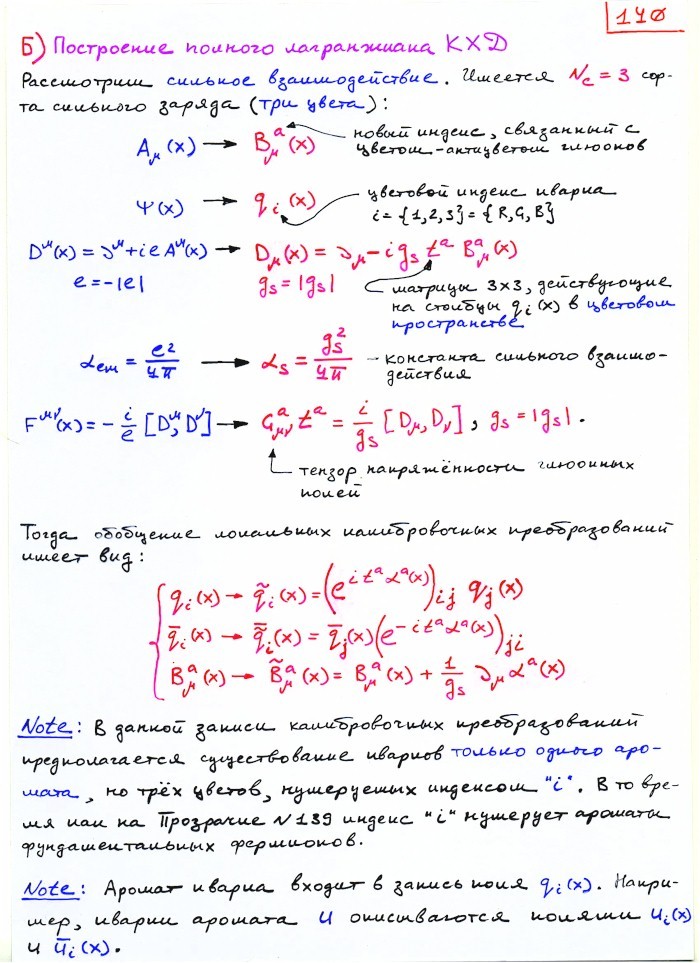 140
Б) Построение полного лагранжиана КХД
Рассмотрим сильное взаимодействие. Имеется N_c = 3 сор-
та сильного заряда (три цвета):
A_μ(x) → B^a_μ(x) новый индекс, связанный с
цветом-антицветом глюонов
Ψ(x) → q_i(x) цветовой индекс кварка
i = {1,2,3} = {R,G,B}
D^μ(x) = ∂^μ + ieA^μ(x) → D_μ(x) = ∂_μ - i g_s t^a B^a_μ(x)
e = -|e| g_s = |g_s| матрицы 3×3, действующие
на столбцы q_i(x) в цветовом
пространстве
α_em = e²/4π → α_s = g_s²/4π — константа сильного взаимо-
действия
F^μν(x) = - i/e [D^μ, D^ν] → G^a_μν t^a = i/g_s [D_μ, D_ν], g_s = |g_s|.
тензор напряжённости глюонных
полей
Тогда обобщение локальных калибровочных преобразований
имеет вид:
q_i(x) → q̃_i(x) = (e^{i t^a α^a(x)})_ij q_j(x)
q̄_i(x) → q̄̃_i(x) = q̄_j(x) (e^{-i t^a α^a(x)})_ji
B^a_μ(x) → B̃^a_μ(x) = B^a_μ(x) + 1/g_s ∂_μ α^a(x)
Note: В данной записи калибровочных преобразований
предполагается существование кварков только одного аро-
мата, но трёх цветов, нумеруемых индексом "i". В то вре-
мя как на Прозрачке N139 индекс "i" нумерует ароматы
фундаментальных фермионов.
Note: Аромат кварка входит в запись поля q_i(x). Напри-
мер, кварки аромата u описываются полями u_i(x)
и ū_i(x).